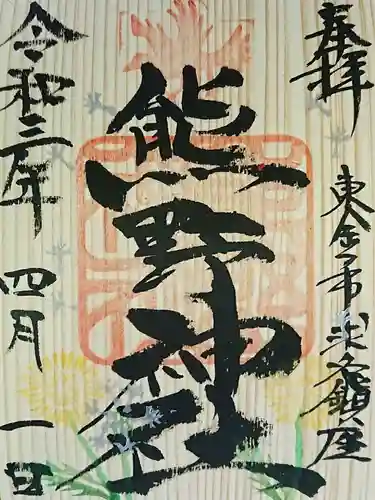 奉拝
東金市求名鎮座
熊野神社
令和三年四月一日